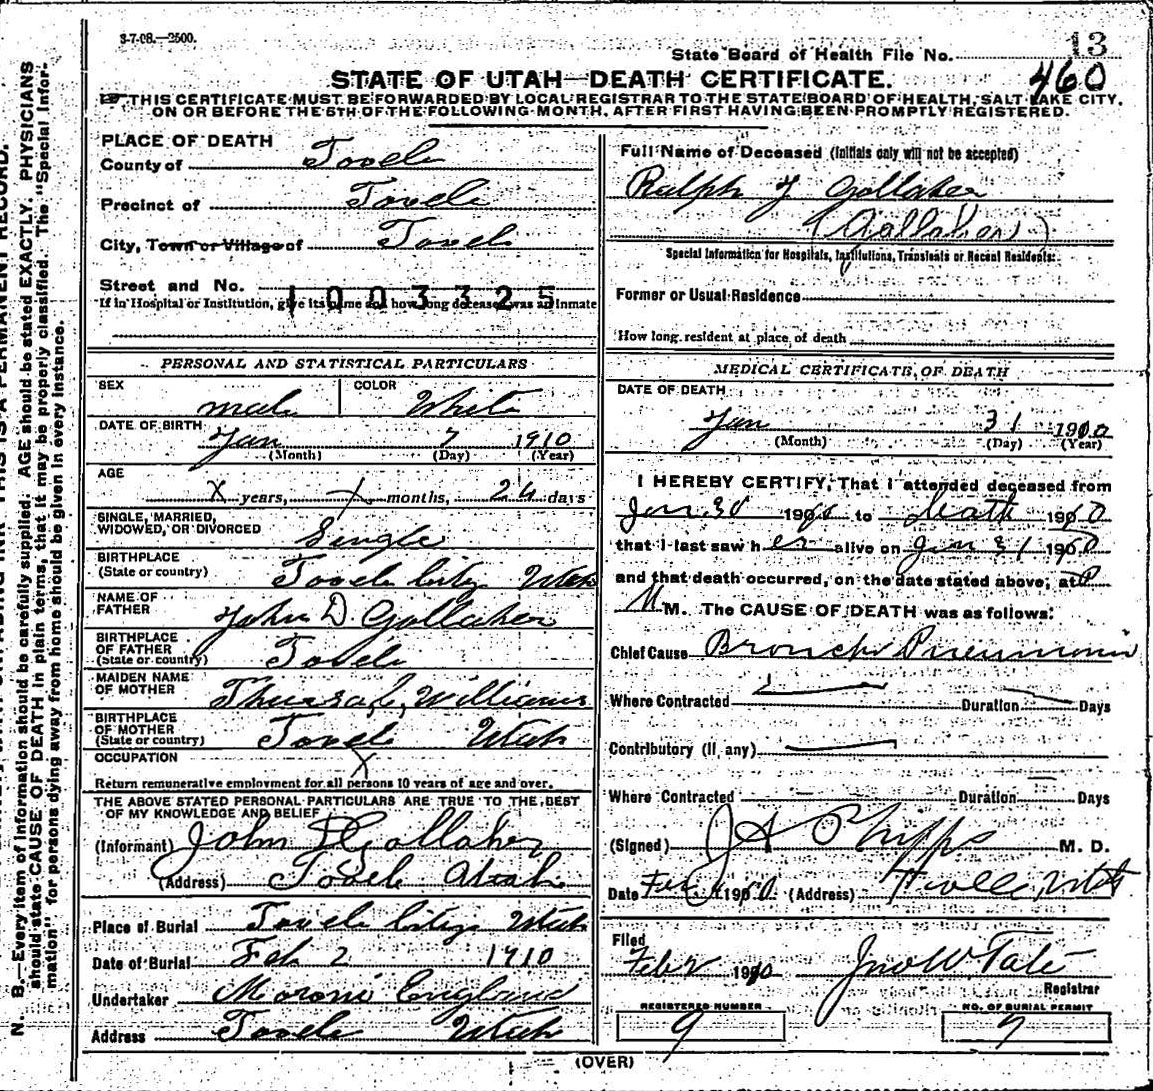 3-7-08.—2500.
13
State Board of Health File No.
460
STATE OF UTAH—DEATH CERTIFICATE.
☞ THIS CERTIFICATE MUST BE FORWARDED BY LOCAL REGISTRAR TO THE STATE BOARD OF HEALTH, SALT LAKE CITY,
ON OR BEFORE THE 5TH OF THE FOLLOWING MONTH, AFTER FIRST HAVING BEEN PROMPTLY REGISTERED.
PLACE OF DEATH
County of Tooele
Precinct of Tooele
City, Town or Village of Tooele
Street and No.
1003325
If in Hospital or Institution, give its name and how long deceased was an inmate
PERSONAL AND STATISTICAL PARTICULARS
SEX male COLOR White
DATE OF BIRTH
Jan 7 1910
(Month) (Day) (Year)
AGE
X years, months, 24 days
SINGLE, MARRIED,
WIDOWED, OR DIVORCED Single
BIRTHPLACE
(State or country) Tooele City Utah
NAME OF
FATHER John D Gollaher
BIRTHPLACE
OF FATHER
(State or country) Tooele
MAIDEN NAME
OF MOTHER Williams
BIRTHPLACE
OF MOTHER
(State or country) Tooele Utah
OCCUPATION X
Return remunerative employment for all persons 10 years of age and over.
THE ABOVE STATED PERSONAL PARTICULARS ARE TRUE TO THE BEST
OF MY KNOWLEDGE AND BELIEF
(Informant) John D Gollaher
(Address) Tooele Utah
Place of Burial Tooele City Utah
Date of Burial Feb 2 1910
Undertaker Moroni England
Address Tooele Utah
Full Name of Deceased (Initials only will not be accepted)
Ralph J Gollaher
(Gollaher)
Special Information for Hospitals, Institutions, Transients or Recent Residents:
Former or Usual Residence
How long resident at place of death
MEDICAL CERTIFICATE OF DEATH
DATE OF DEATH
Jan 31 1910
(Month) (Day) (Year)
I HEREBY CERTIFY, That I attended deceased from
Jan 30 1910 to death 1910
that I last saw h er alive on Jan 31 1910
and that death occurred, on the date stated above, at P
M. The CAUSE OF DEATH was as follows:
Chief Cause Broncho Pneumonia
Where Contracted Duration Days
Contributory (if any)
Where Contracted Duration Days
(Signed) J A Phipps M. D.
Date Feb 1910 (Address) Tooele Utah
Filed
Feb 2 1910 Jno W Tate
Registrar
REGISTERED NUMBER
9
NO. OF BURIAL PERMIT
9
(OVER)
N. B.—Every item of information should be carefully supplied. AGE should be stated EXACTLY. PHYSICIANS
should state CAUSE OF DEATH in plain terms, that it may be properly classified. The "Special Infor-
mation" for persons dying away from home should be given in every instance.